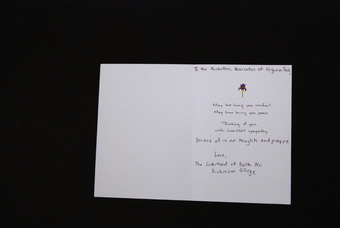 To the Panhellenic Association at Virginia Tech,
May love bring you comfort.
May love bring you peace.
Thinking of you
with heartfelt sympathy.
You are all in our thoughts and prayers.
Love,
The Sisterhood of Delta Nu
Dickinson College